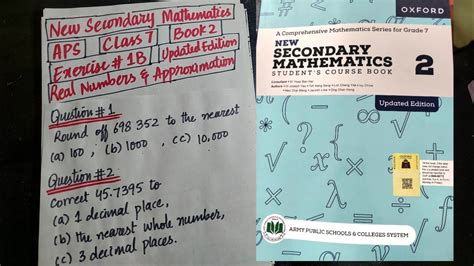 New Secondary Mathematics
APS Class 7 Book 2
Exercise # 1B Updated Edition
Real Numbers & Approximation
Question # 1
Round off 698 352 to the nearest
(a) 100 , (b) 1000 , (c) 10,000
Question # 2
Correct 45.7395 to
(a) 1 decimal place,
(b) the nearest whole number,
(c) 3 decimal places.
OXFORD
A Comprehensive Mathematics Series for Grade 7
NEW
SECONDARY
MATHEMATICS
STUDENT'S COURSE BOOK 2
Updated Edition
ARMY PUBLIC SCHOOLS & COLLEGES SYSTEM